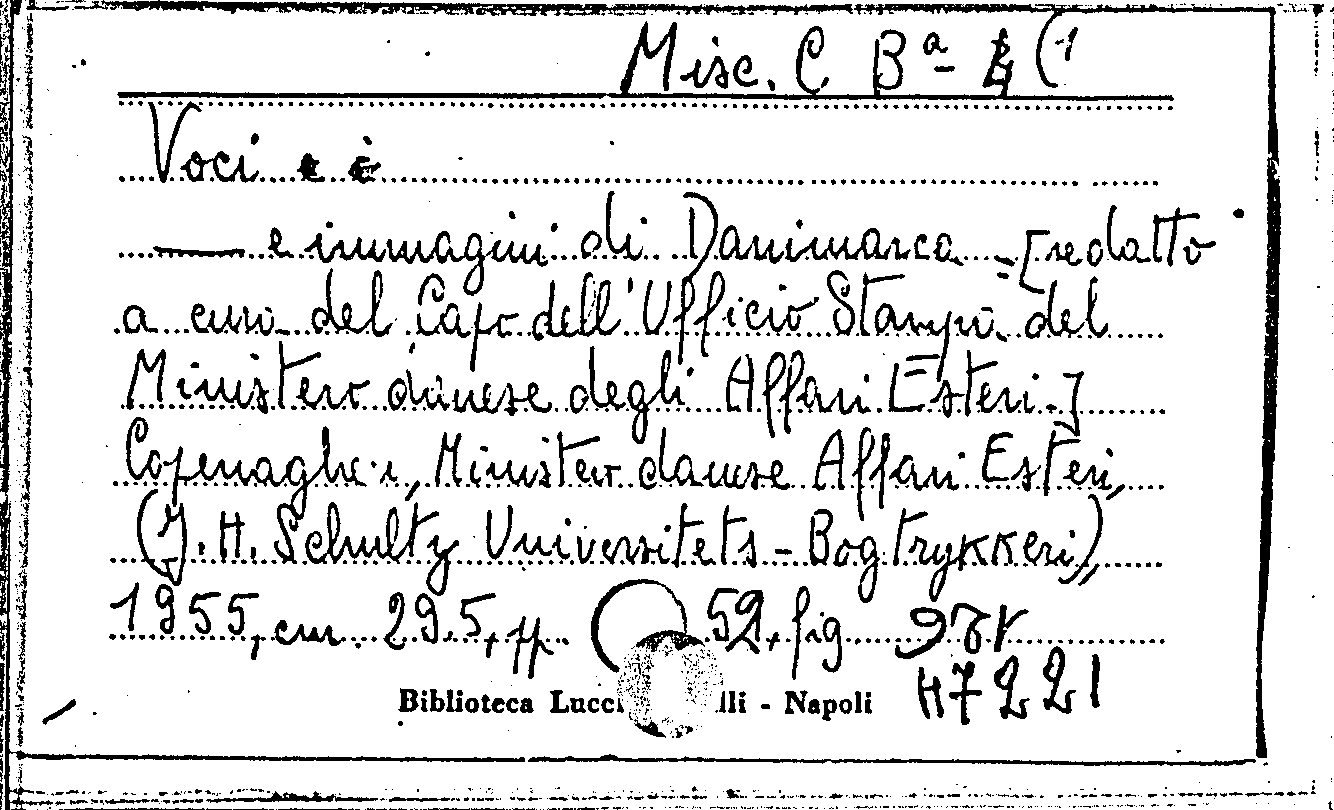 Misc. C Bª 4 (1
Voci e è
—— e immagini di Danimarca = [redatto
a cura del Capo dell'Ufficio Stampa del
Ministero danese degli Affari Esteri.]
Copenaghen, Ministero danese Affari Esteri,
(J. H. Schultz Universitets - Bogtrykkeri),
1955, cm. 29.5, pp. 52, fig
Biblioteca Lucc lli - Napoli
47221